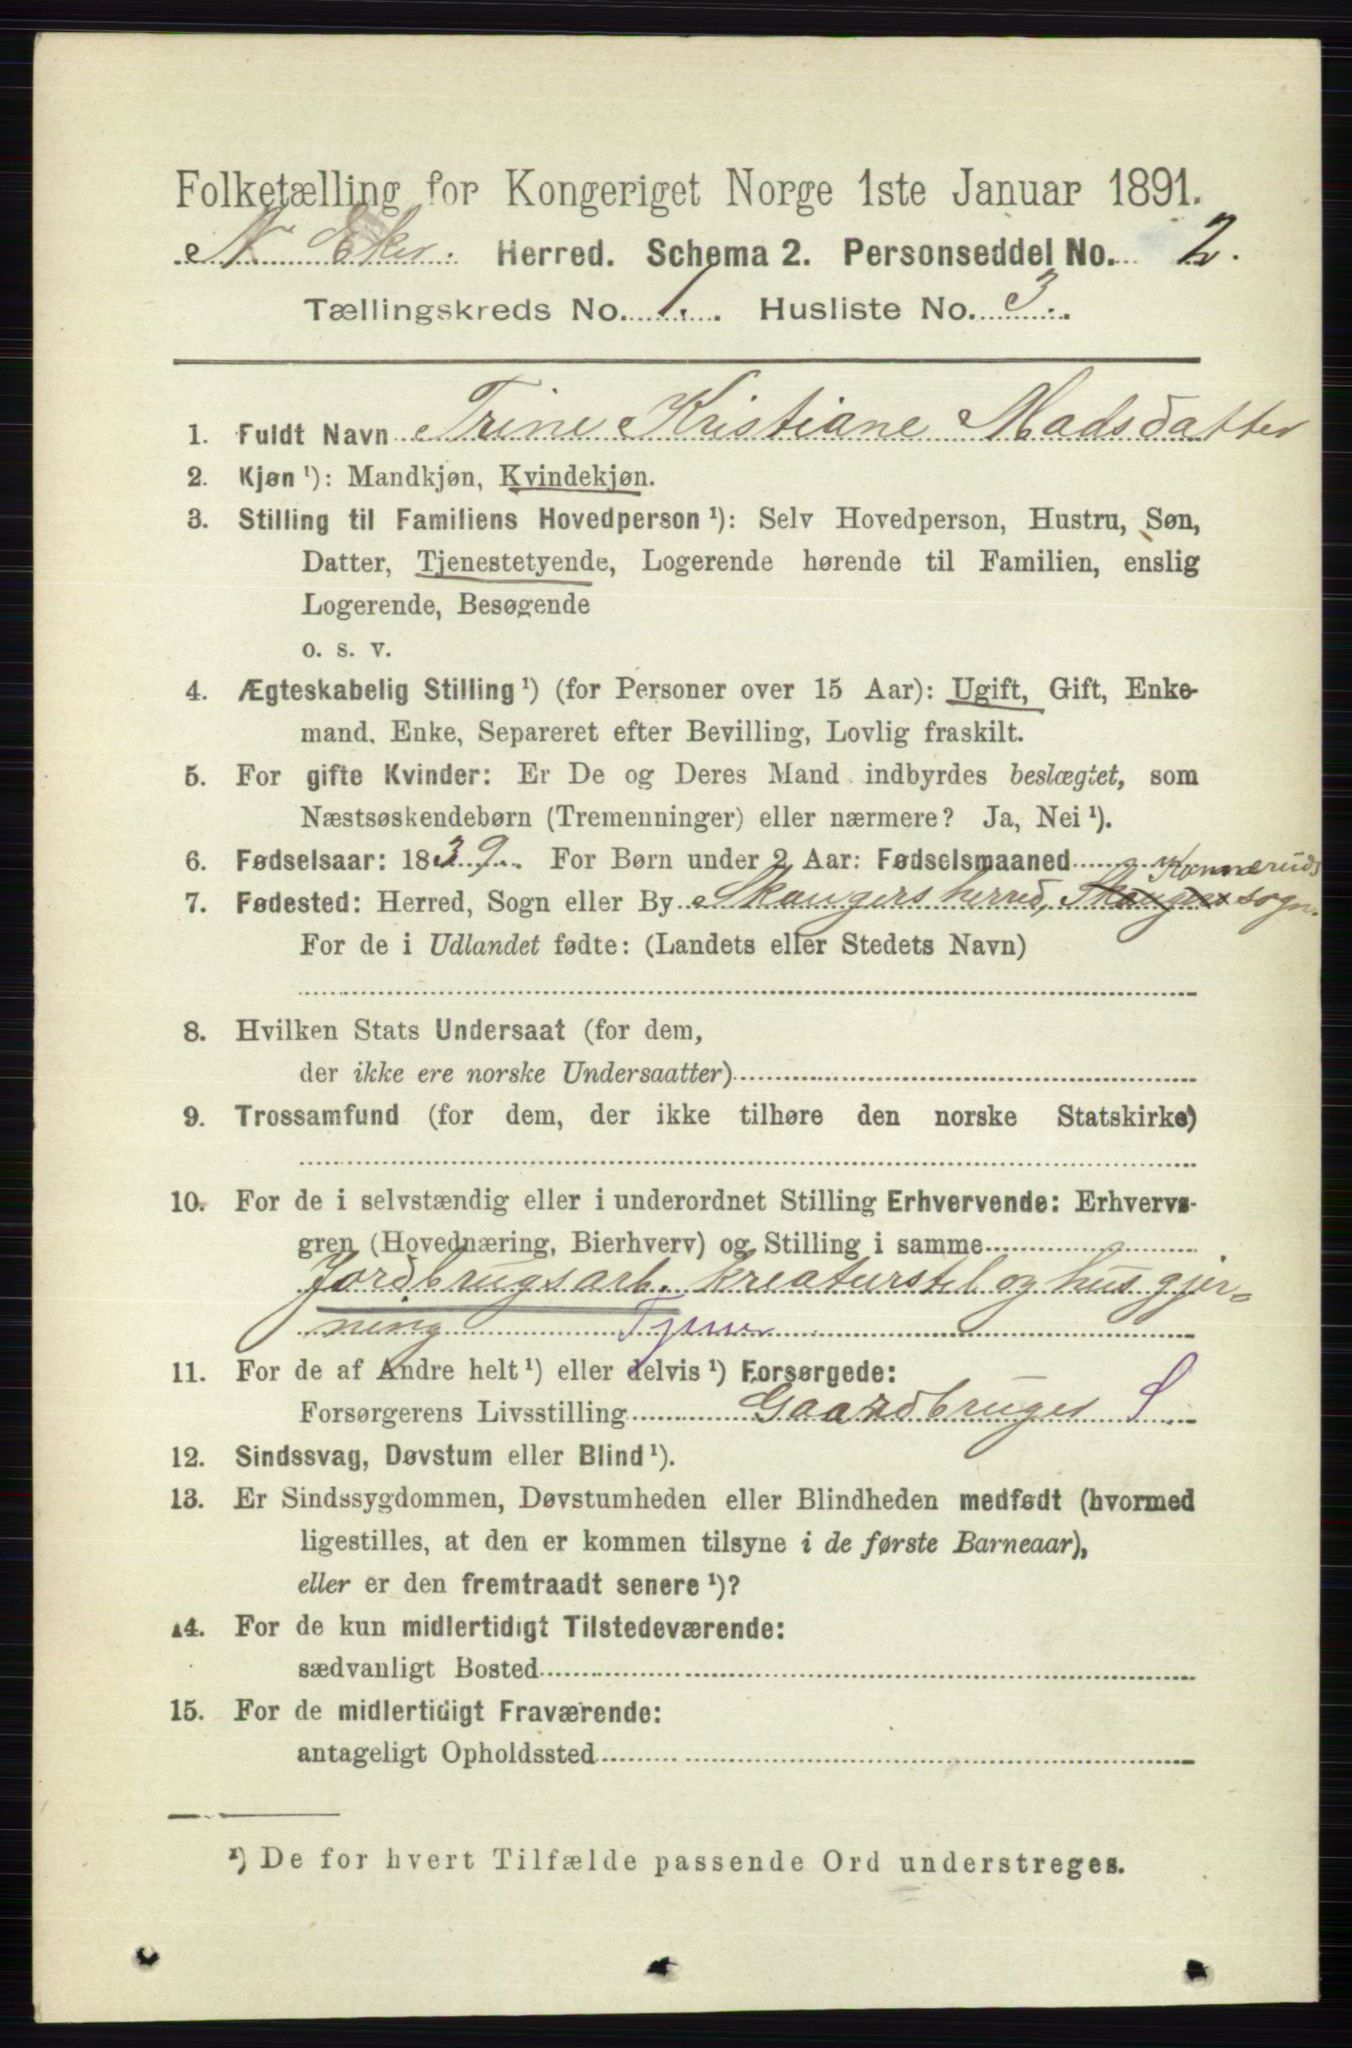 Folketælling for Kongeriget Norge 1ste Januar 1891.
N. Eker. Herred. Schema 2. Personseddel No. 2.
Tællingskreds No. 1. Husliste No. 3.
1. Fuldt Navn Trine Kristiane Madsdatter
2. Kjøn ¹): Mandkjøn, Kvindekjøn.
3. Stilling til Familiens Hovedperson ¹): Selv Hovedperson, Hustru, Søn,
Datter, Tjenestetyende, Logerende hørende til Familien, enslig
Logerende, Besøgende
o. s. v.
4. Ægteskabelig Stilling ¹) (for Personer over 15 Aar): Ugift, Gift, Enke-
mand, Enke, Separeret efter Bevilling, Lovlig fraskilt.
5. For gifte Kvinder: Er De og Deres Mand indbyrdes beslægtet, som
Næstsøskendebørn (Tremenninger) eller nærmere? Ja, Nei ¹).
6. Fødselsaar: 1839. For Børn under 2 Aar: Fødselsmaaned
Konneruds
7. Fødested: Herred, Sogn eller By Skougers herred, Skouger sogn.
For de i Udlandet fødte: (Landets eller Stedets Navn)
8. Hvilken Stats Undersaat (for dem,
der ikke ere norske Undersaatter)
9. Trossamfund (for dem, der ikke tilhøre den norske Statskirke)
10. For de i selvstændig eller i underordnet Stilling Erhvervende: Erhvervs-
gren (Hovednæring, Bierhverv) og Stilling i samme
Jordbrugsarb. kreaturstel og husgjer-
ning Tjener
11. For de af Andre helt ¹) eller delvis ¹) Forsørgede:
Forsørgerens Livsstilling Gaardbruger S
12. Sindssvag, Døvstum eller Blind ¹).
13. Er Sindssygdommen, Døvstumheden eller Blindheden medfødt (hvormed
ligestilles, at den er kommen tilsyne i de første Barneaar),
eller er den fremtraadt senere ¹)?
14. For de kun midlertidigt Tilstedeværende:
sædvanligt Bosted
15. For de midlertidigt Fraværende:
antageligt Opholdssted
¹) De for hvert Tilfælde passende Ord understreges.